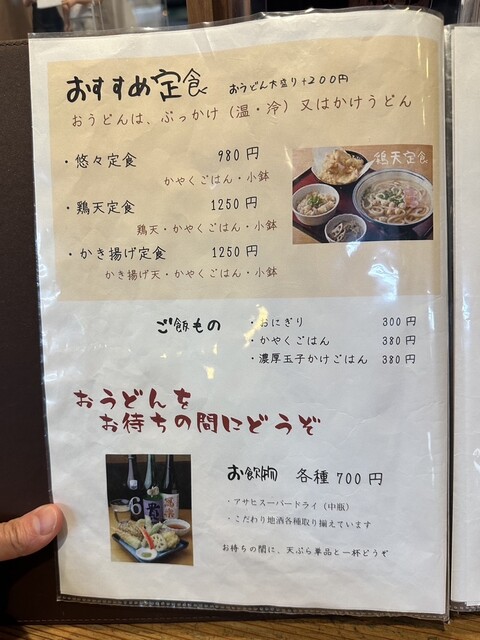 おすすめ定食 おうどん大盛り+200円
おうどんは、ぶっかけ（温・冷）又はかけうどん
・悠々定食 980円
かやくごはん・小鉢
・鶏天定食 1250円
鶏天・かやくごはん・小鉢
・かき揚げ定食 1250円
かき揚げ天・かやくごはん・小鉢
鶏天定食
ご飯もの
・おにぎり 300円
・かやくごはん 380円
・濃厚玉子かけごはん 380円
おうどんを
お待ちの間にどうぞ
お飲物 各種700円
・アサヒスーパードライ（中瓶）
・こだわり地酒各種取り揃えています
お待ちの間に、天ぷら単品と一杯どうぞ